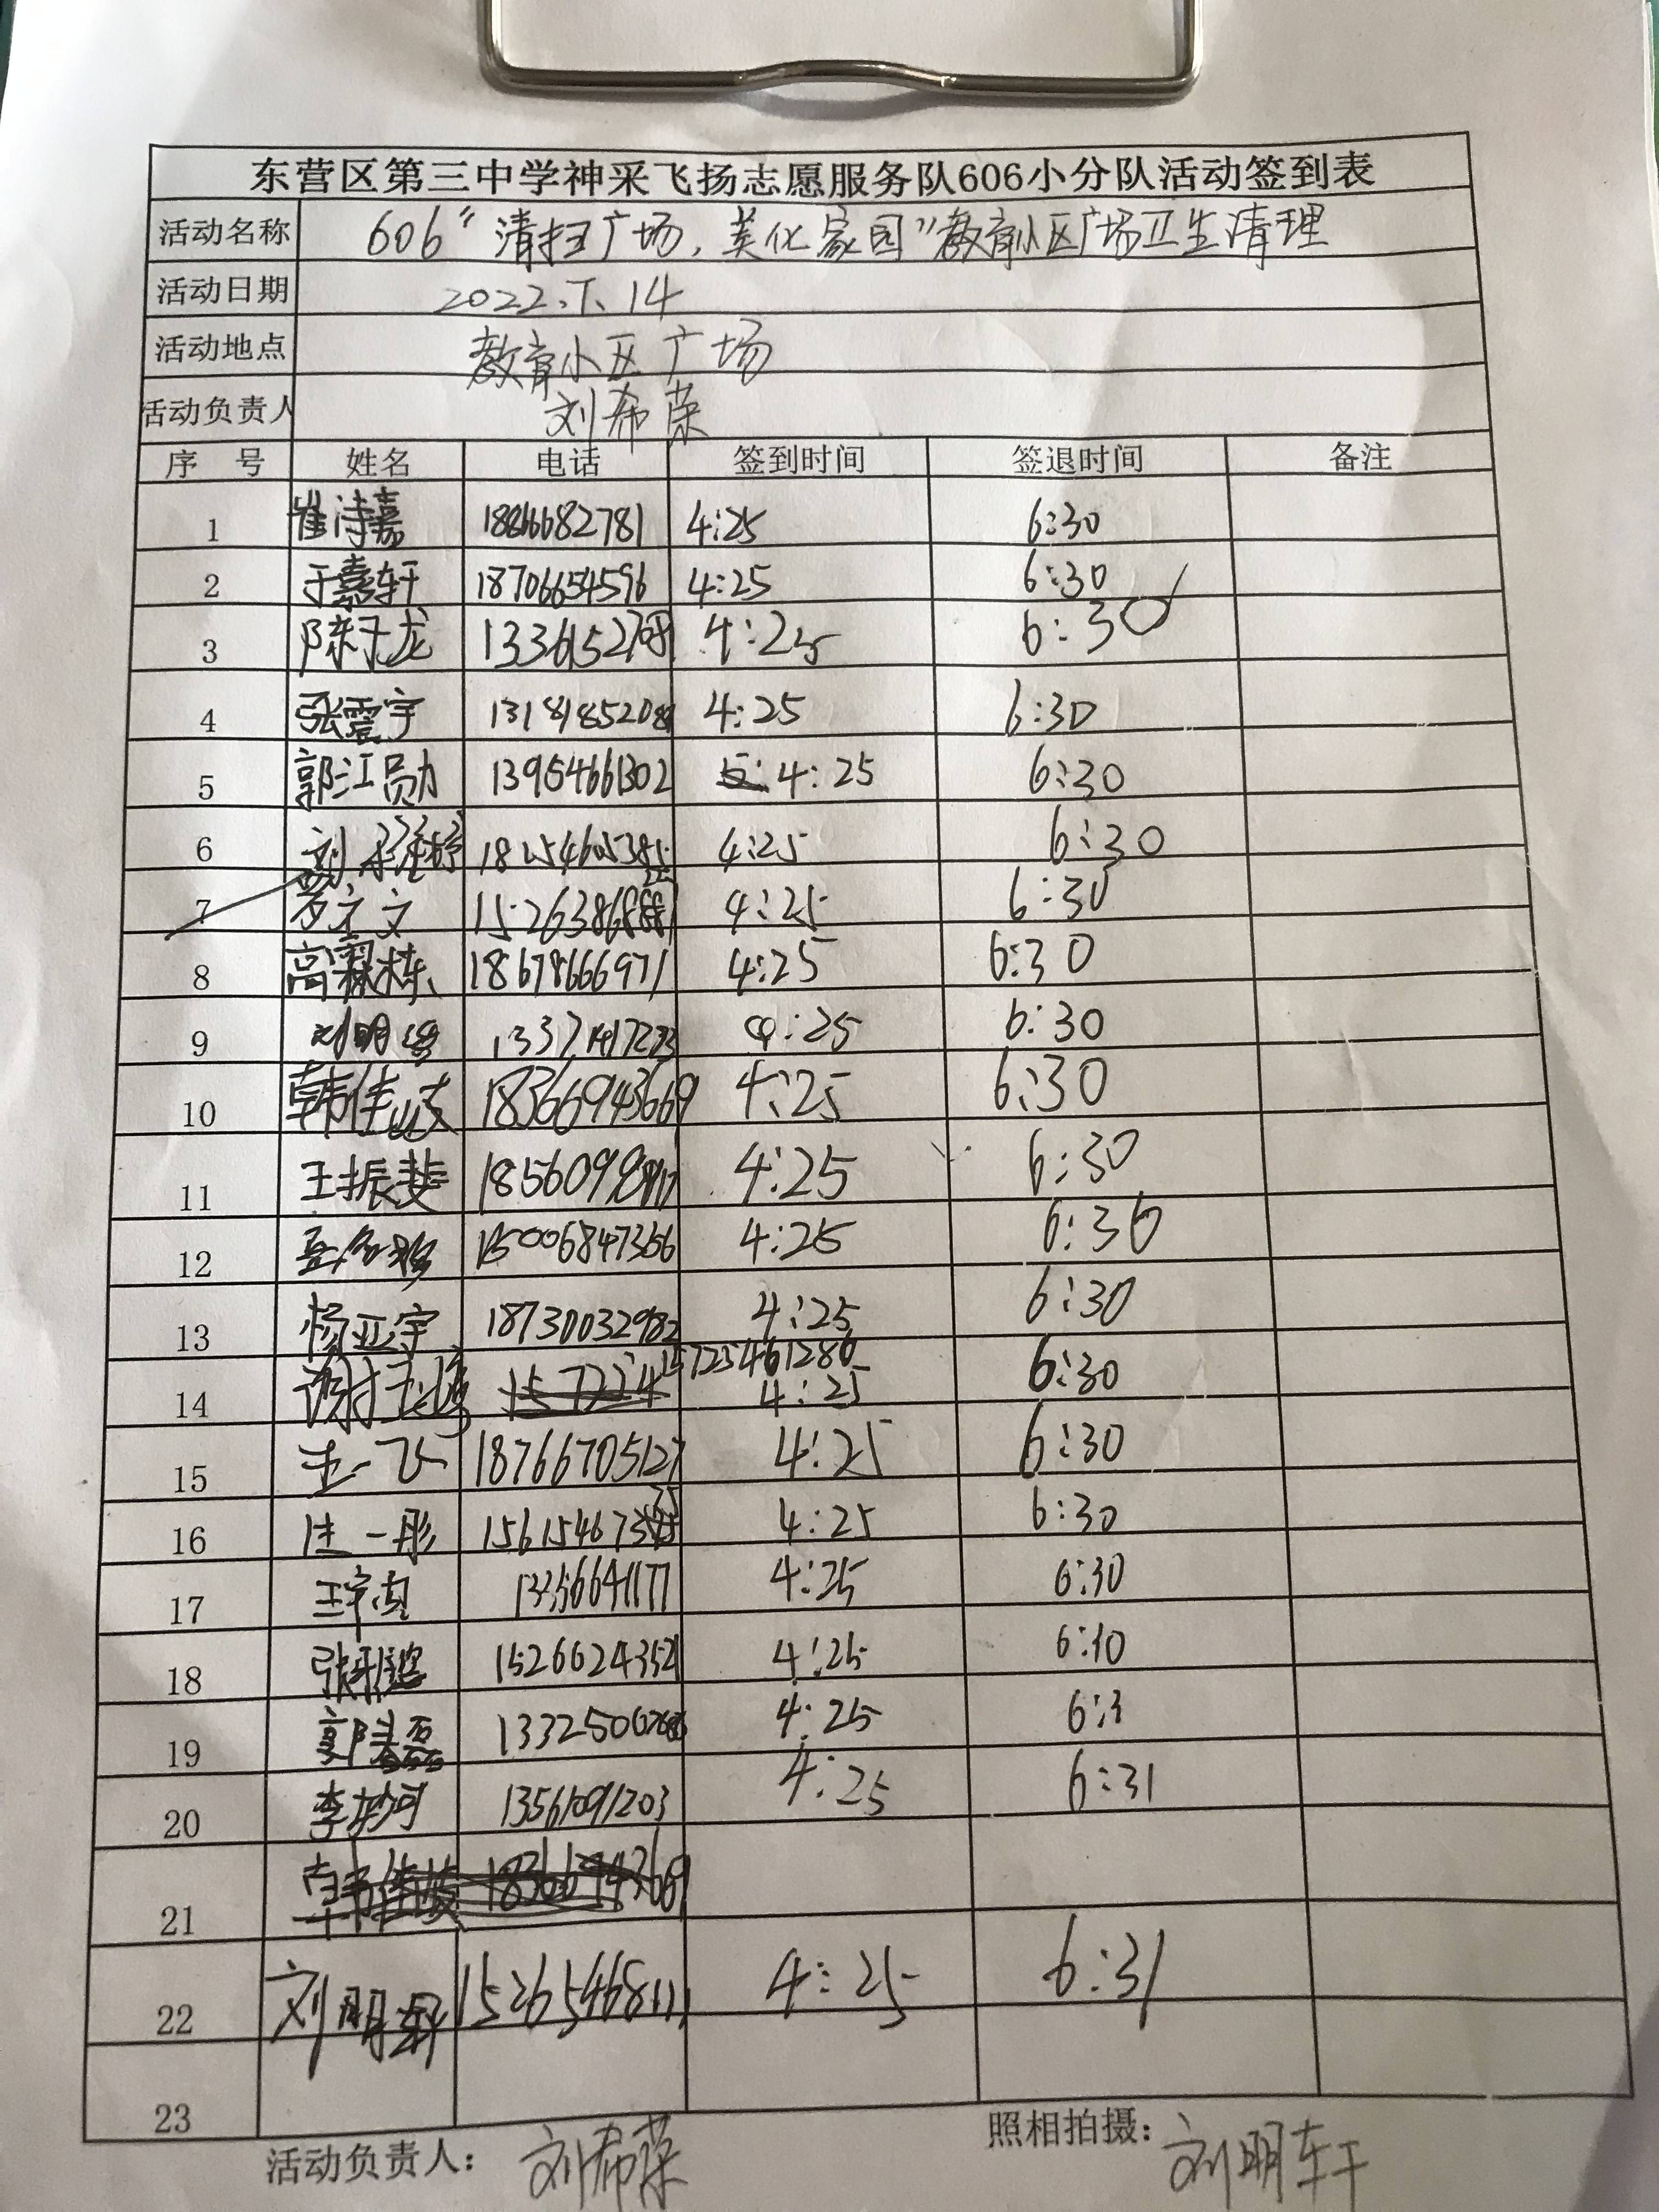 东营区第三中学神采飞扬志愿服务队606小分队活动签到表
活动名称 606“清扫广场,美化家园”教育小区广场卫生清理
活动日期 2022.5.14
活动地点 教育小区广场
活动负责人 刘希荣
序 号 姓名 电话 签到时间 签退时间 备注
1 崔诗嘉 4:25 6:30
2 于熹轩 18706654596 4:25 6:30
3 陈子龙 4:25 6:30
4 张震宇 4:25 6:30
5 郭江勋 13954661302 4:25 6:30
6 刘 4:25 6:30
7 4:25 6:30
8 高霖栋 18678666971 4:25 6:30
9 刘明 4:25 6:30
10 韩佳岐 18366943669 4:25 6:30
11 王振斐 4:25 6:30
12 15006847356 4:25 6:30
13 杨亚宇 18730032982 4:25 6:30
14 谢 15725461286 4:25 6:30
15 王一飞 18766705127 4:25 6:30
16 一彤 4:25 6:30
17 王 13356641177 4:25 6:30
18 张 4:25 6:30
19 郭 磊 4:25 6:3
20 李 13561091203 4:25 6:31
21
22 刘明轩 15265468111 4:25 6:31
23
活动负责人: 刘希荣 照相拍摄: 刘明轩